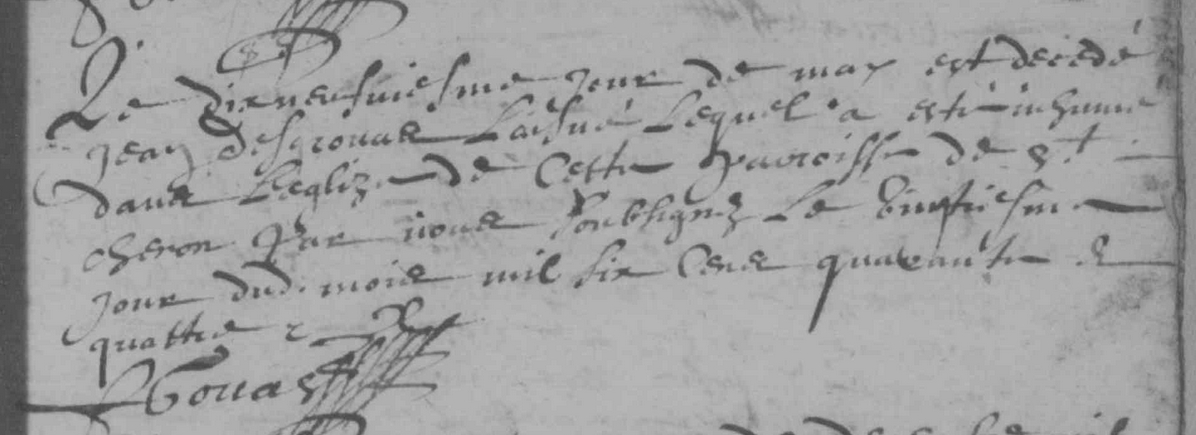 Le dixneufviesme jour de may est decedé
jean desgrouas Laisné Lequel a esté inhumé
dans Leglize de Cette parroisse de St
cheron par nous soubsignez Le vingtiesme
jour dud. mois mil six Cens quarante &
quattre